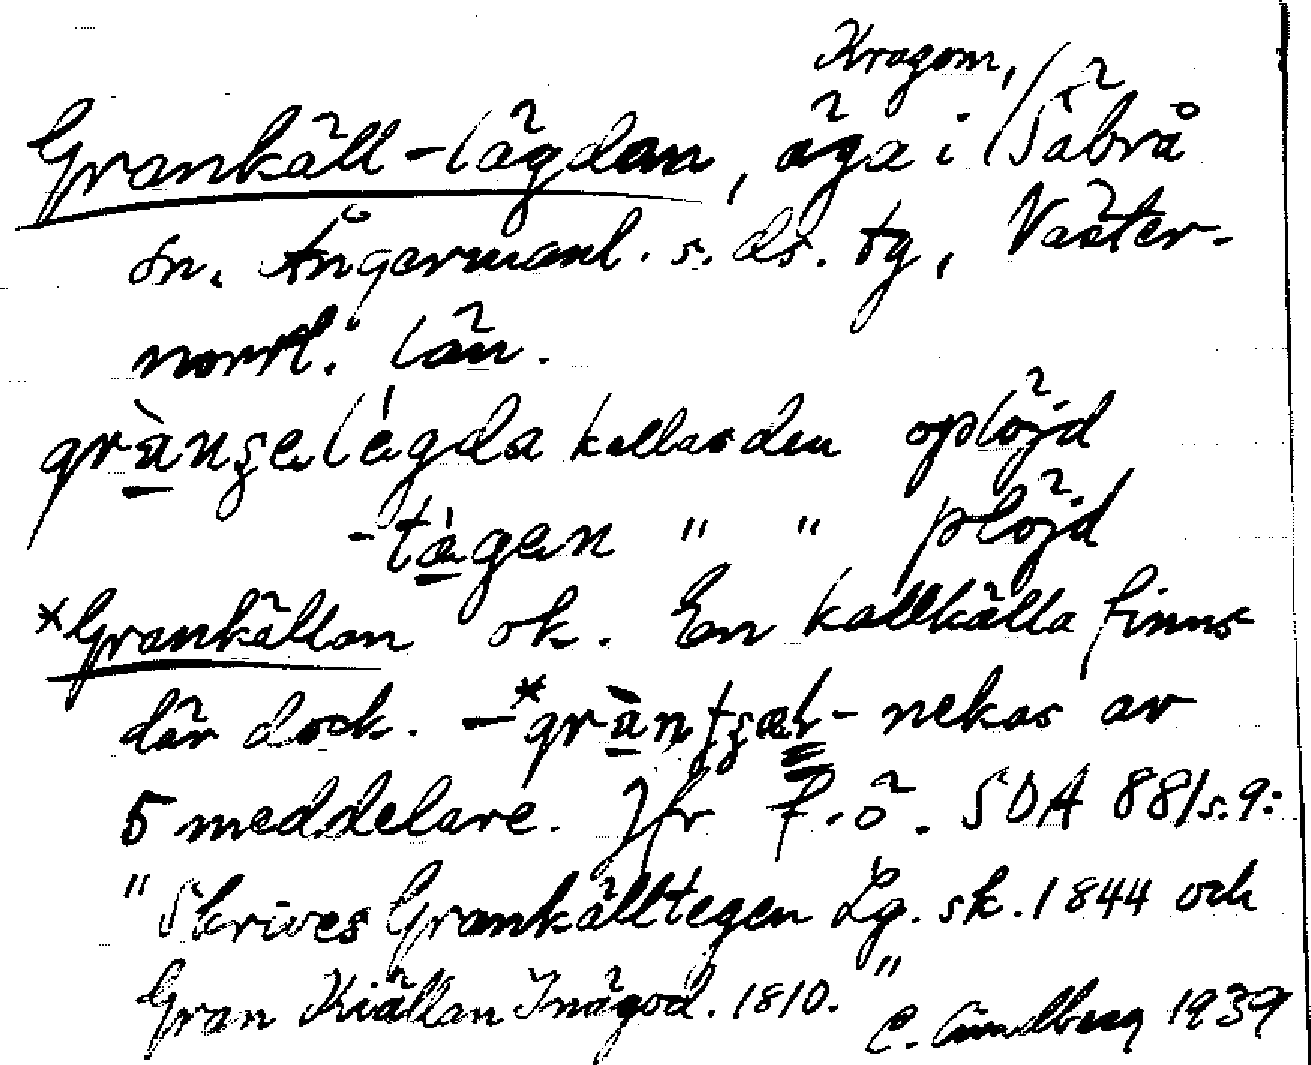 Kragom,
Grankäll-lägdan, äga i Säbrå
sn. Ångermanl. s. ds. tg, Väster-
norrl. län.
grànsela̍gda kallas den oplöjd
-tægen " " plöjd
*Grankällan ok. En kallkälla finns
där dock. - nekas av
5 meddelare. Jfr f.ö. SOA 881 s. 9:
"Skrives Grankälltegen Lg. sk. 1844 och
Gran Kiällan Inägod. 1810."
C. Lundberg 1939